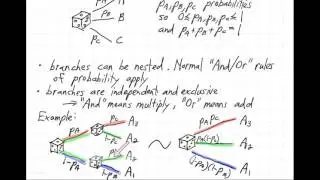 pA A pA, pB, pC probabilities
pB B so 0≤pA,pB,pC≤1
pC C and pA+pB+pC=1
• branches can be nested. Normal "And/Or" rules
of probability apply
• branches are independent and exclusive
→ "And" means multiply, "Or" means add
Example:
pA pC A3 pApC A3
1-pC A2 pA(1-pC) A2
1-pA pB A2 A2
1-pB A1 (1-pA)(1-pB) A1